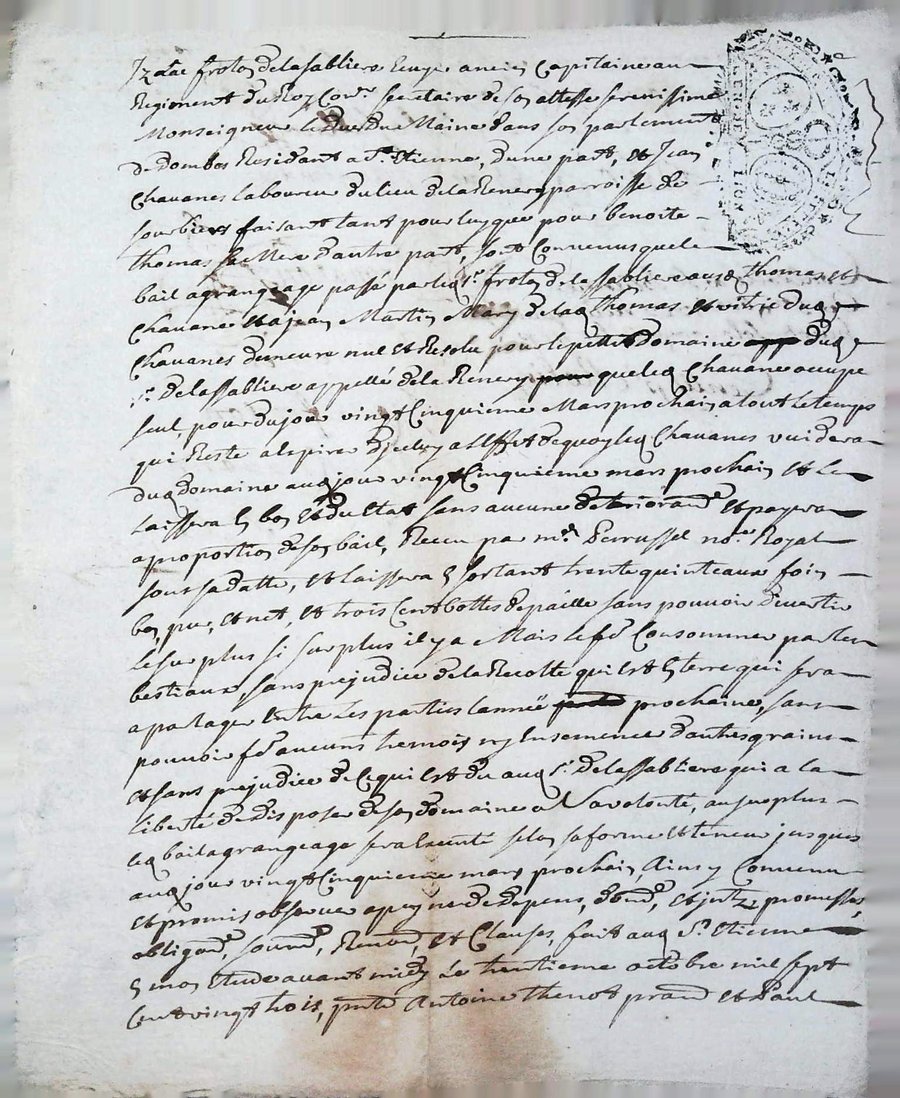 froton de la sabliere Ecuyer ancien Capitaine au
Regiment du Roy Con.er secretaire de son altesse serenissime
Monseigneur le Duc du Maine dans son parlement
de dombes Residant a S.t Etienne, dune part, et Jean
Chavanes laboureur du lieu de la Renery parroisse de
sorbiers faisant tant pour luy que pour benoite
thomas sa Mere dautre part, sont Convenus que le
bail a grangeage passé par led s.r froton de la sabliere ausd thomas et
Chavane et a jean Martin Mary de lad thomas et dud
Chavanes demeure nul et Resolu pour le petit domaine dud
s.r de la sabliere appellé de la Renery que led Chavane occupe
seul, pour du jour vingt Cinquieme Mars prochain a tout le temps
qui Reste a expirer dicelluy a leffet de quoy led Chavanes vuidera
dud domaine aud jour vingt Cinquieme mars prochain et le
laissera en bon et du Etat sans aucune et payera
a proportion de son bail, Receu par m.e Perrussel no.re Royal
sous sa datte, et laissera en sortant trente quinteaux foin
bon, pur, et net, et trois Cent bottes de paille sans pouvoir divertir
le surplus si surplus il y a Mais le f.e Consommer par les
bestiaux, sans prejudice de la Recolte qui est en terre qui sera
a partager entre les parties lannée prochaine, sans
pouvoir f.e aucuns tremois ny Ensemencer dautres grains
et sans prejudice de ce qui est du aud s.r de la sabliere qui a la
liberté de disposer de son domaine a sa volonté, au surplus
led bail a grangeage sera Executé selon sa forme et teneur jusques
aud jour vingt Cinquieme mars prochain, Ainsy Convenu
et promis observer a peyne de depens, et promesses,
obliga.on, soum.on, Renon.on, et Clauses, fait aud S.t Etienne
en mon Etude avant midy le trentieme octobre mil sept
Cent vingt trois, Antoine thenot et Paul